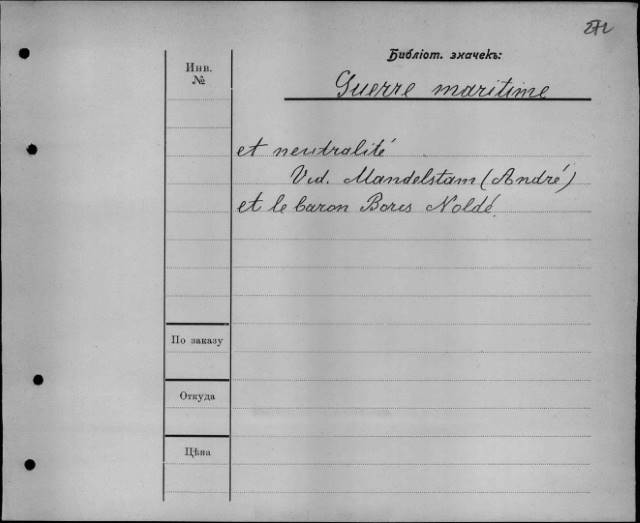 272
Библіот. значекъ:
Инв.
№
Guerre maritime
et neutralité
Vid. Mandelstam (André)
et le baron Boris Noldé.
По заказу
Откуда
Цѣна